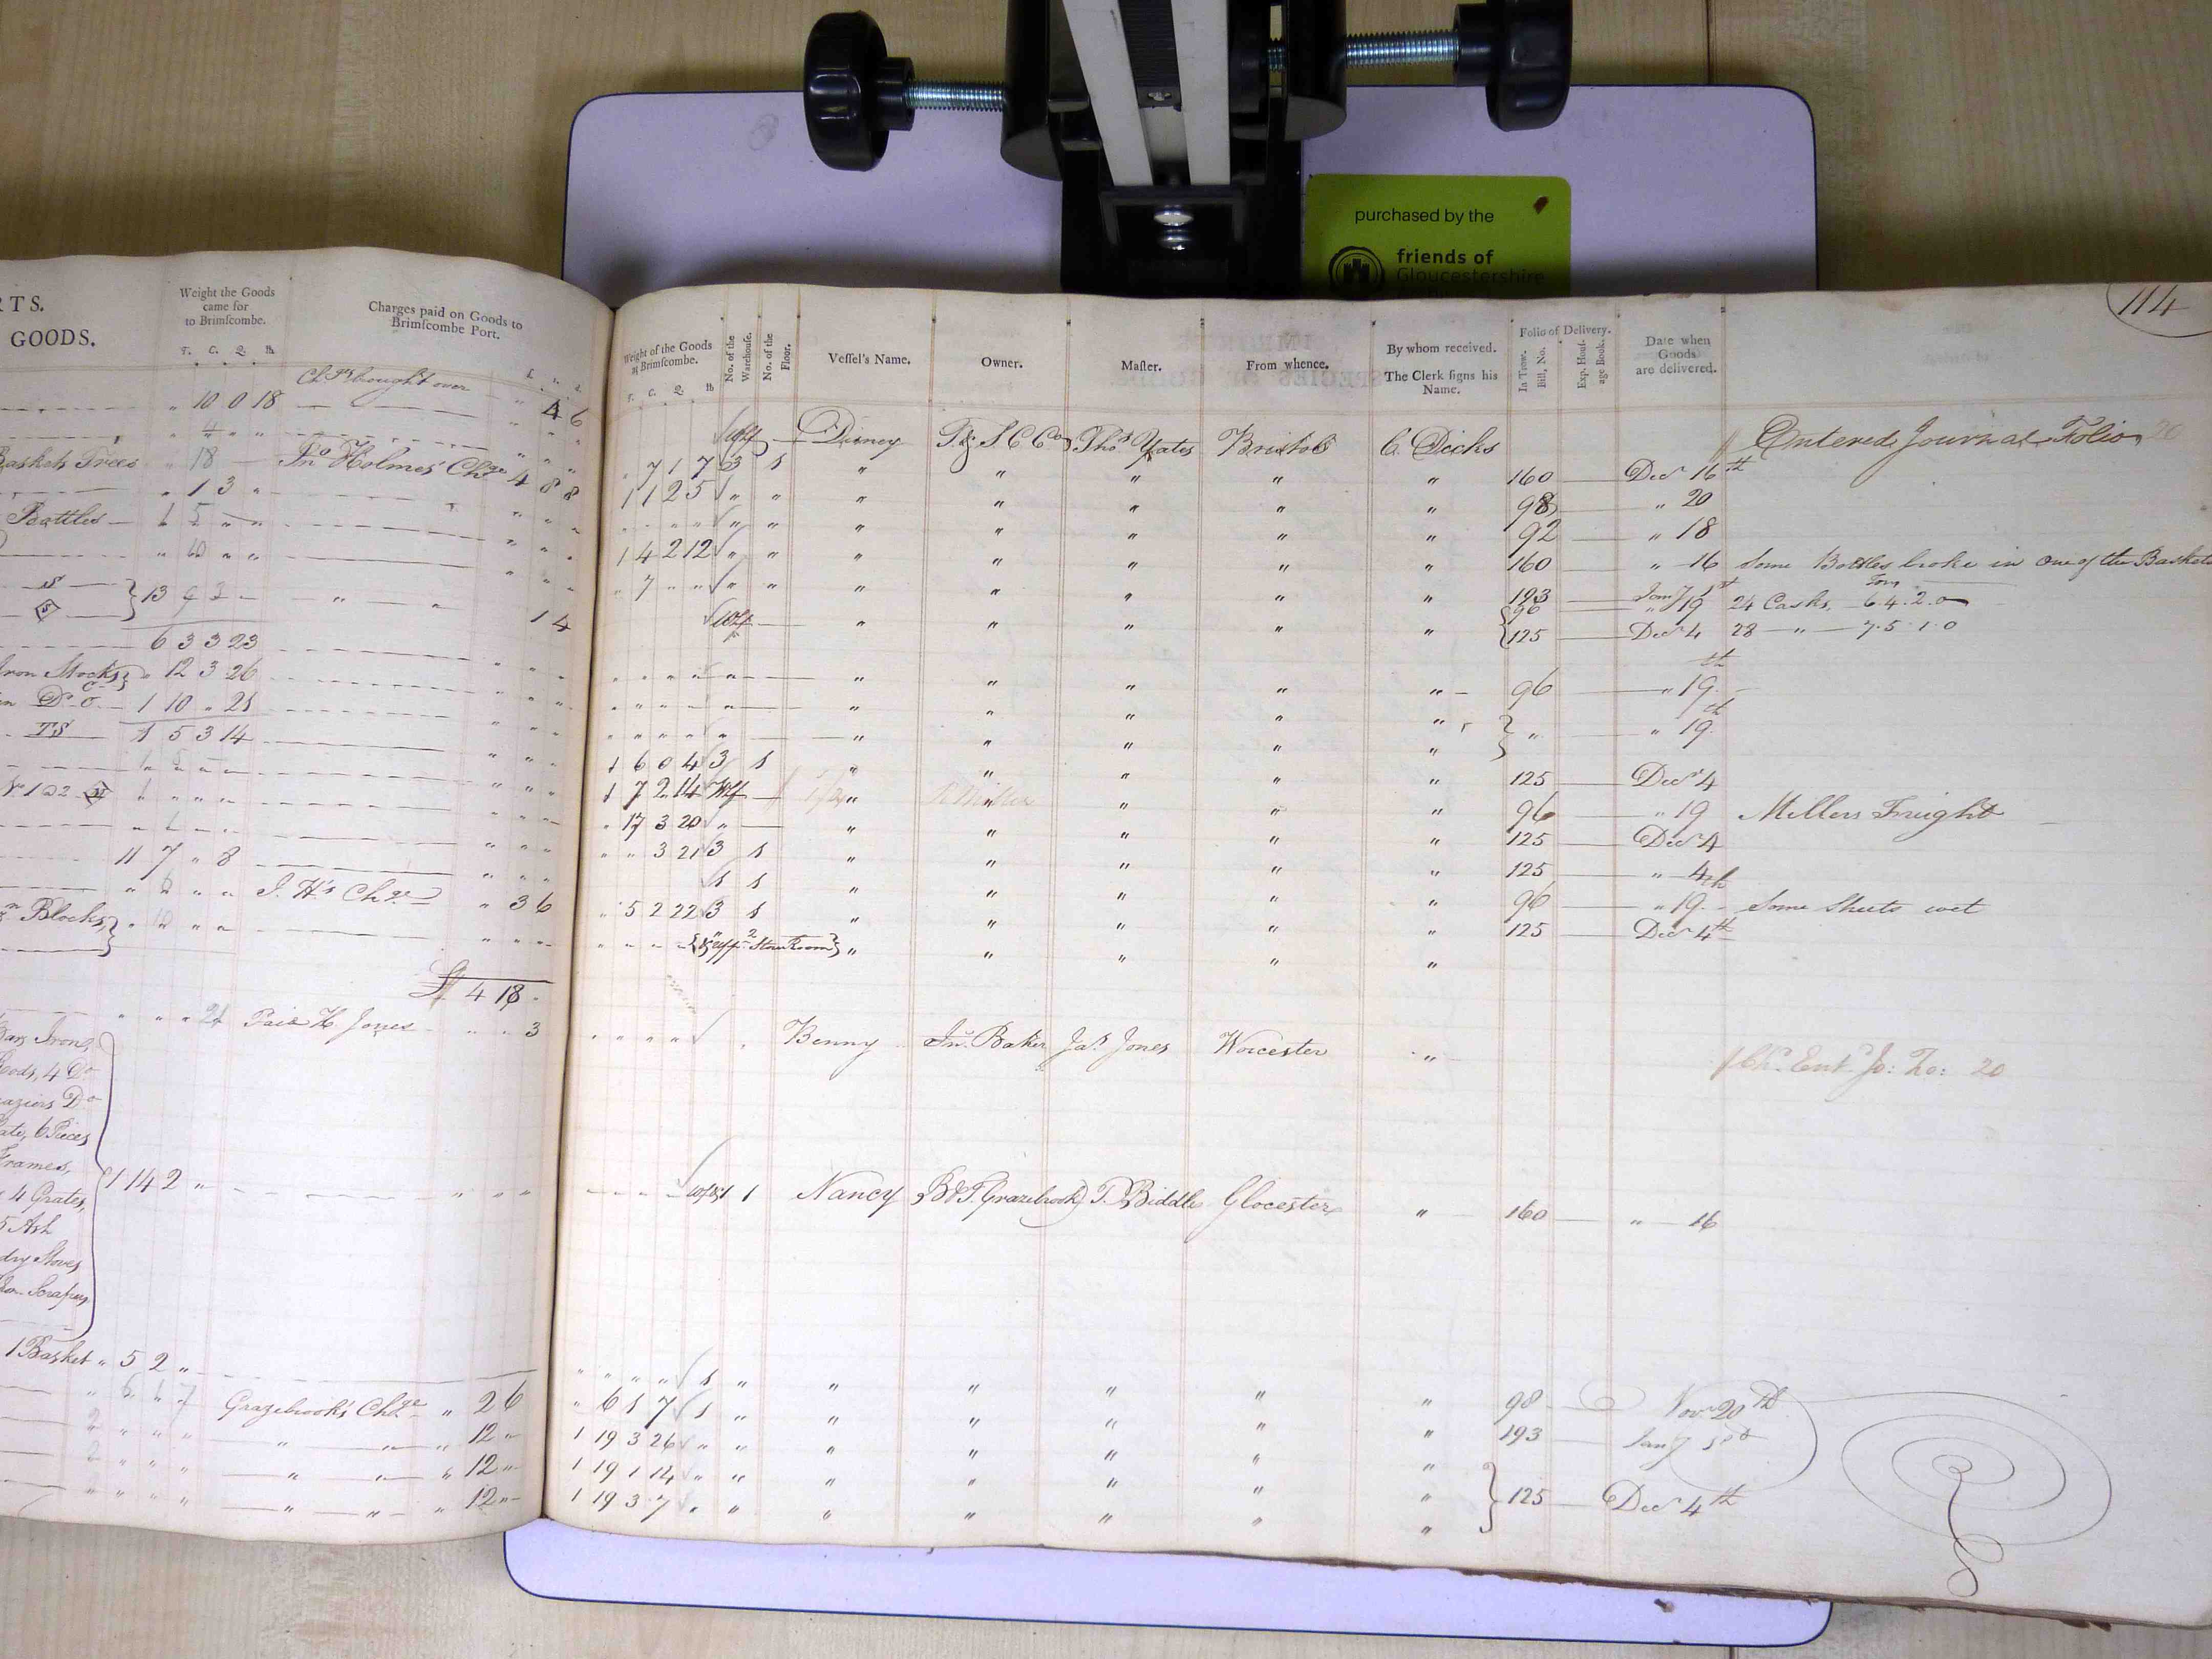 purchased by the
friends of
Gloucestershire
114
RTS.
GOODS.
Weight the Goods
came for
to Brimſcombe.
T. C. Q. lb
Charges paid on Goods to
Brimſcombe Port.
Weight of the Goods
at Brimſcombe.
T. C. Q. lb
No. of the
Warehouſe.
No. of the
Floor.
Veſſel's Name.
Owner.
Maſter.
From whence.
By whom received.
The Clerk ſigns his
Name.
Folio of Delivery.
In Tow.
Bill, No.
Exp. Houſ-
age Book.
Date when
Goods
are delivered.
" 10 0 18 " 4 6
" 4 " "
Baskets Trees " 18 — Jno Holmes' Chge 4 8 8
" 1 3 "
Bottles — 1 5 " "
" 10 " "
13 " " 1 4
6 3 3 23
Iron Stocks " 12 3 26
in Do 1 10 " 25
TS 1 5 3 14
No 1 @ 2
11 7 " 8
" 6 " " J. H's Chge " 3 6
Blocks, " 10 " "
£ 4 18 -
" " " 24 Paid H. Jones " " 3
Bars Iron,
Rods, 4 Do
6 Pieces
Frames,
4 Grates,
5 Ash
Stoves
1 14 2 "
1 Basket " 5 2 "
" 6 1 7 Grazebrook's Chge " 2 6
2 " " " " " " 12 "
2 " " " " " " 12 "
" " " " " " " 12 "
Whf — Disney T & S C Co Thos Yates Bristol C. Dicks Entered Journal Folio 20
" 7 1 7 3 1 " " " " " 160 Decr 16th
1 1 2 5 " " " " " " " 98 " 20
" " " " " " " " " " " 92 " 18
1 4 2 12 " " " " " " " 160 " 16 Some Bottles broke in One of the Baskets
" 7 " " " " " " " " " 193 Jany 1st
Whf — " " " " " 96 " 19 24 Casks, 6.4.2.0
125 Decr 4 28 — " — 7.5.1.0
" " " " " — " " " " " 96 " 19th
" " " " " — " " " " "
" " " " " — " " " " " " " 19th
1 6 0 4 3 1 " " " " " 125 Decr 4
1 7 2 14 Whf — " " " " " 96 " 19 Millers Freight
" 17 3 20 " — " " " " " 125 Decr 4
" " 3 21 3 1 " " " " " 125 " 4th
1 1 " " " " " 96 " 19 Some Sheets wet
" 5 2 22 3 1 " " " " " 125 Decr 4th
" " " " Store Room " " " " "
" " " " Benny Jno Baker Jas Jones Worcester " Chs Entd Jo: Fo: 20
1 Nancy B & T. Grazebrook T. Biddle Glocester " 160 " 16
" " " " 1 " " " " " " 98 Novr 20th
" 6 1 7 1 " " " " " " 193 Jany 1st
1 19 3 26 " " " " " " "
1 19 1 14 " " " " " " " 125 Decr 4th
1 19 3 7 " " " " " " "